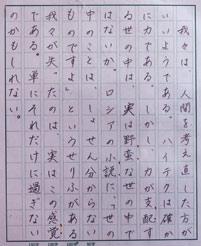 我々は、人間を考え直した方が
いいようである。ハイテクは確か
に力である。しかし、力が支配す
る世の中は、実は野蛮な世の中で
はないか。ロシアの小説に、「世の
中のことは、しょせん分からない
ものですよ」というせりふがある。
我々が失ったのは、実はこの感覚
である。単にそれだけに過ぎない
のかもしれない。